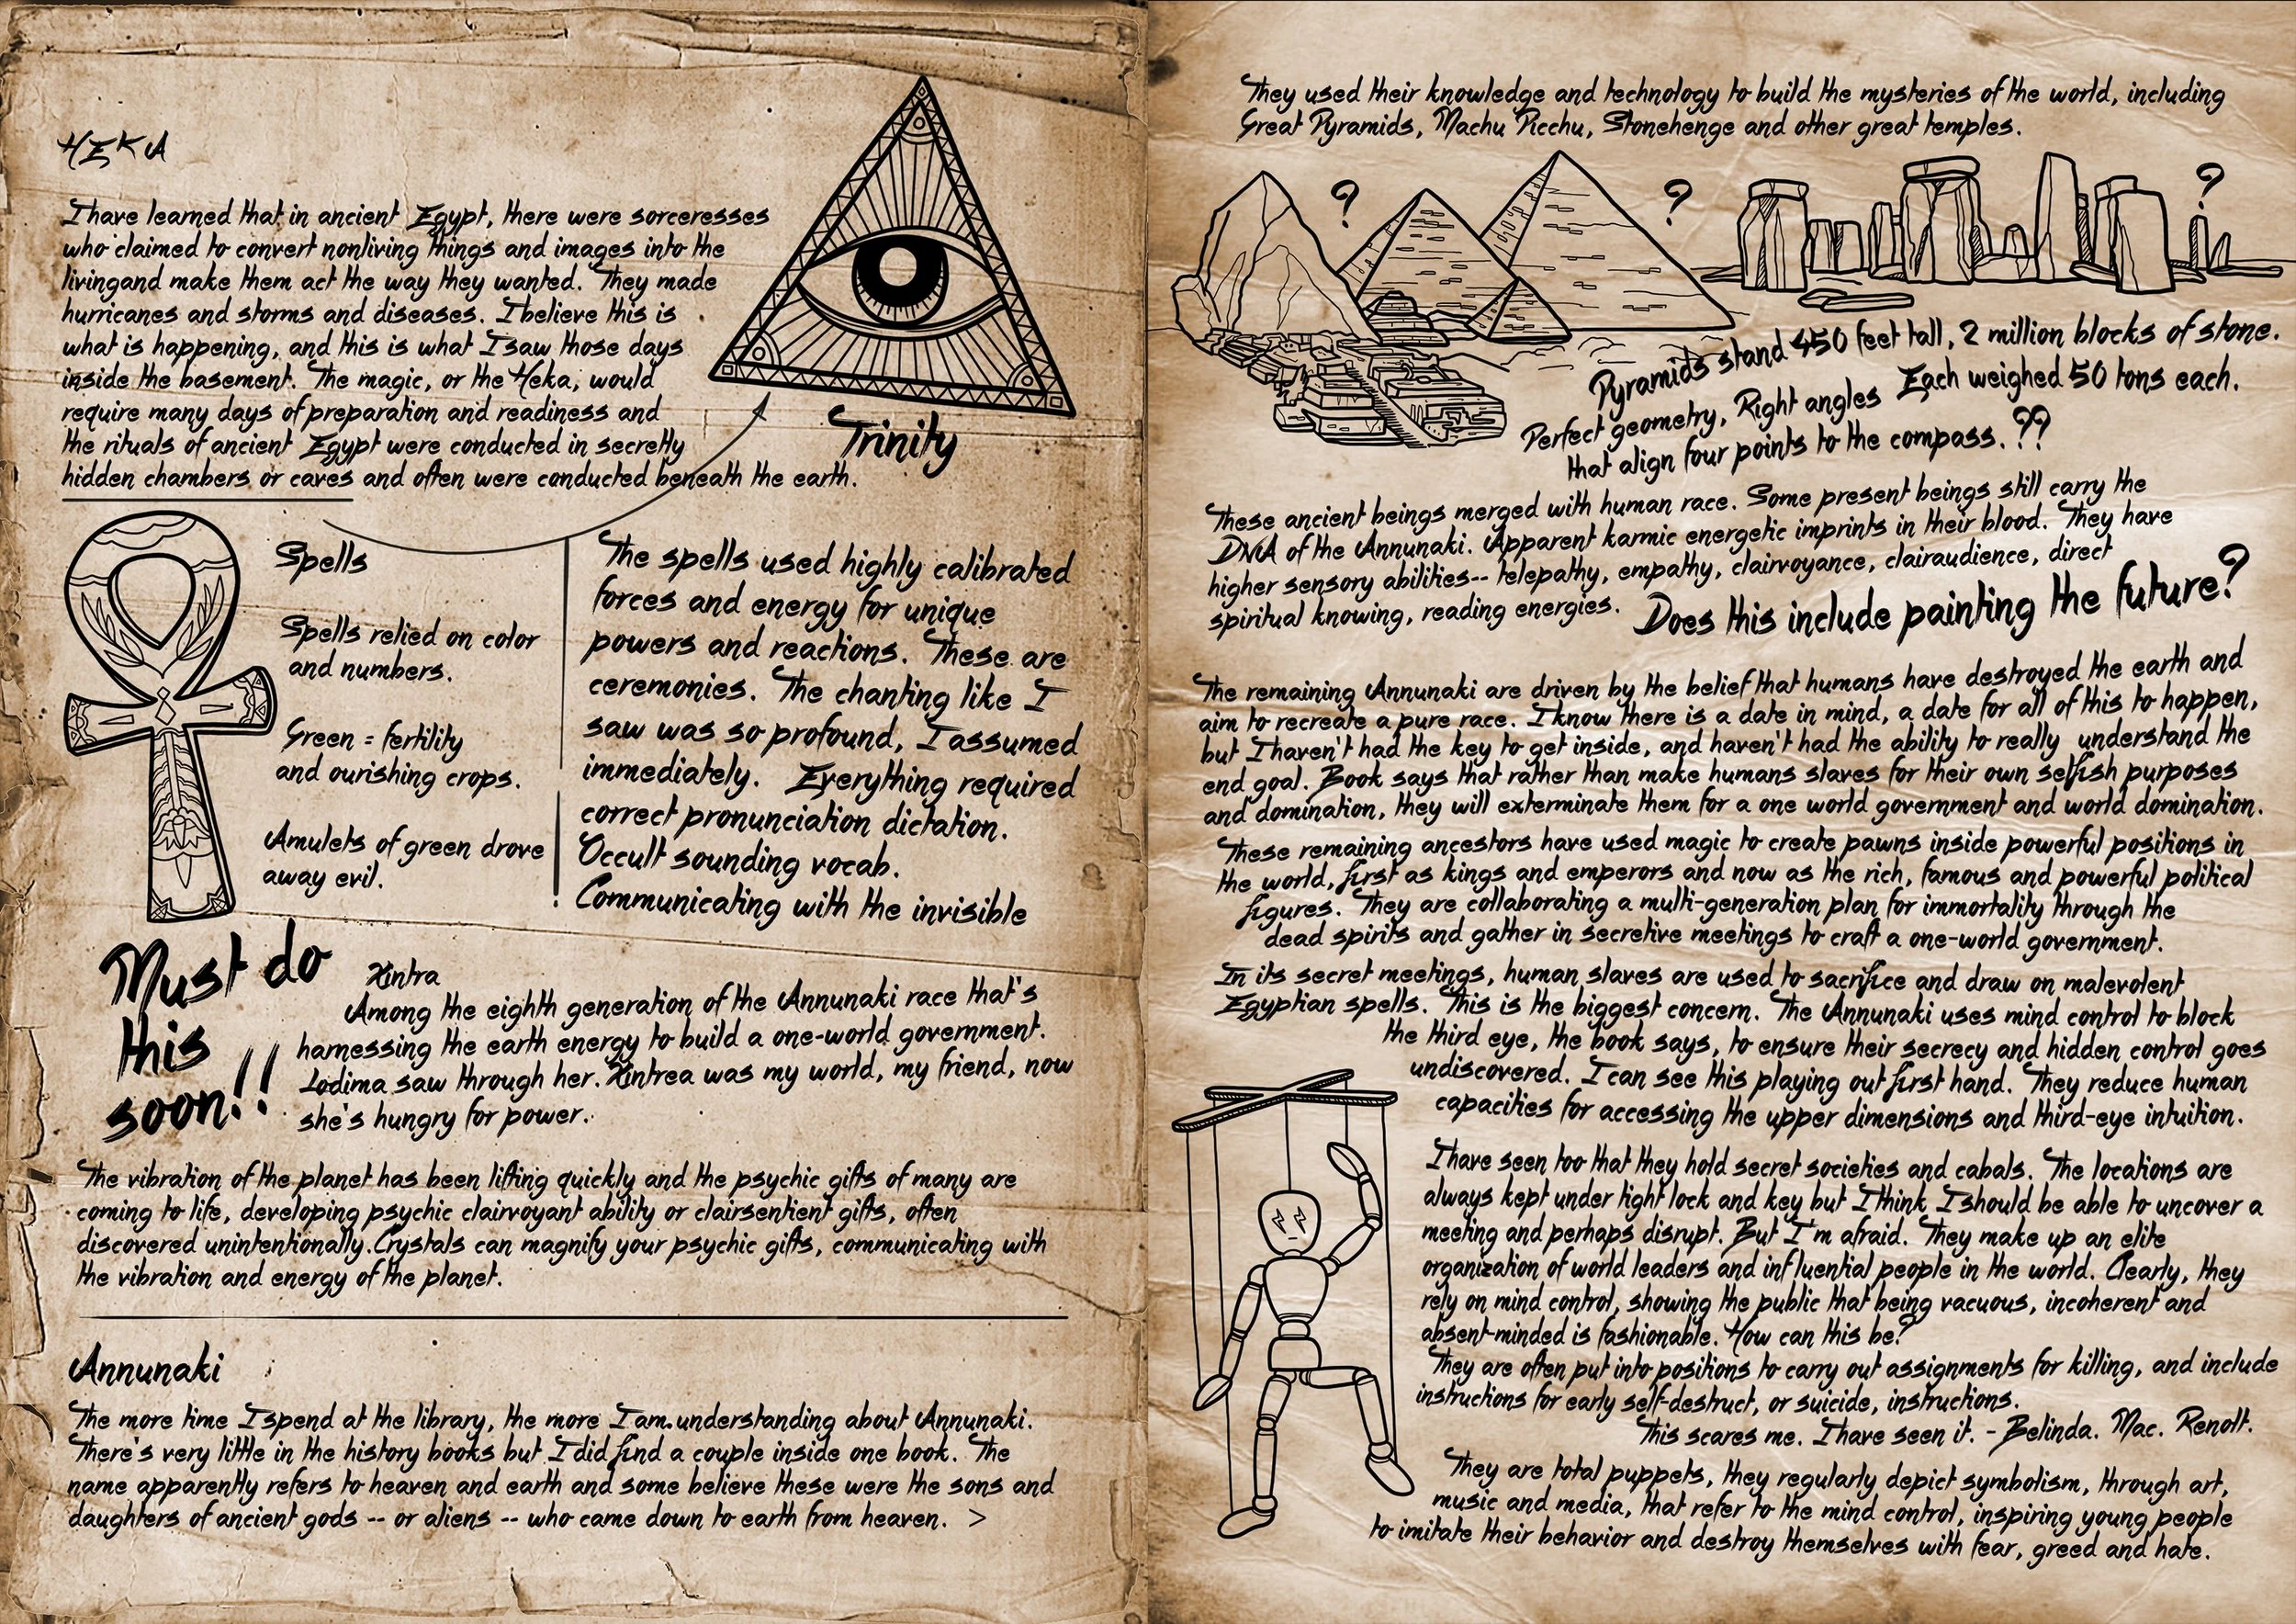 HEKA
I have learned that in ancient Egypt, there were sorceresses
who claimed to convert nonliving things and images into the
livingand make them act the way they wanted. They made
hurricanes and storms and diseases. I believe this is
what is happening, and this is what I saw those days
inside the basement. The magic, or the Heka, would
require many days of preparation and readiness and
the rituals of ancient Egypt were conducted in secretly
hidden chambers or caves and often were conducted beneath the earth.
Trinity
Spells
Spells relied on color
and numbers.
Green = fertility
and ourishing crops.
Amulets of green drove
away evil.
The spells used highly calibrated
forces and energy for unique
powers and reactions. These are
ceremonies. The chanting like I
saw was so profound, I assumed
immediately. Everything required
correct pronunciation dictation.
Occult sounding vocab.
Communicating with the invisible
Must do
this
soon!!
Xintra
Among the eighth generation of the Annunaki race that's
harnessing the earth energy to build a one-world government.
Lodima saw through her. Xintrea was my world, my friend, now
she's hungry for power.
The vibration of the planet has been lifting quickly and the psychic gifts of many are
coming to life, developing psychic clairvoyant ability or clairsentient gifts, often
discovered unintentionally. Crystals can magnify your psychic gifts, communicating with
the vibration and energy of the planet.
Annunaki
The more time I spend at the library, the more I am understanding about Annunaki.
There's very little in the history books but I did find a couple inside one book. The
name apparently refers to heaven and earth and some believe these were the sons and
daughters of ancient gods -- or aliens -- who came down to earth from heaven. >
They used their knowledge and technology to build the mysteries of the world, including
Great Pyramids, Machu Picchu, Stonehenge and other great temples.
? ? ?
Pyramids stand 450 feet tall, 2 million blocks of stone.
Each weighed 50 tons each.
Perfect geometry, Right angles
that align four points to the compass. ??
These ancient beings merged with human race. Some present beings still carry the
DNA of the Annunaki. Apparent karmic energetic imprints in their blood. They have
higher sensory abilities-- telepathy, empathy, clairvoyance, clairaudience, direct
spiritual knowing, reading energies. Does this include painting the future?
The remaining Annunaki are driven by the belief that humans have destroyed the earth and
aim to recreate a pure race. I know there is a date in mind, a date for all of this to happen,
but I haven't had the key to get inside, and haven't had the ability to really understand the
end goal. Book says that rather than make humans slaves for their own selfish purposes
and domination, they will exterminate them for a one world government and world domination.
These remaining ancestors have used magic to create pawns inside powerful positions in
the world, first as kings and emperors and now as the rich, famous and powerful political
figures. They are collaborating a multi-generation plan for immortality through the
dead spirits and gather in secretive meetings to craft a one-world government.
In its secret meetings, human slaves are used to sacrifice and draw on malevolent
Egyptian spells. This is the biggest concern. The Annunaki uses mind control to block
the third eye, the book says, to ensure their secrecy and hidden control goes
undiscovered. I can see this playing out first hand. They reduce human
capacities for accessing the upper dimensions and third-eye intuition.
I have seen too that they hold secret societies and cabals. The locations are
always kept under tight lock and key but I think I should be able to uncover a
meeting and perhaps disrupt. But I'm afraid. They make up an elite
organization of world leaders and influential people in the world. Clearly, they
rely on mind control, showing the public that being vacuous, incoherent and
absent-minded is fashionable. How can this be?
They are often put into positions to carry out assignments for killing, and include
instructions for early self-destruct, or suicide, instructions.
This scares me. I have seen it. - Belinda. Mac. Renolt.
They are total puppets, they regularly depict symbolism, through art,
music and media, that refer to the mind control, inspiring young people
to imitate their behavior and destroy themselves with fear, greed and hate.